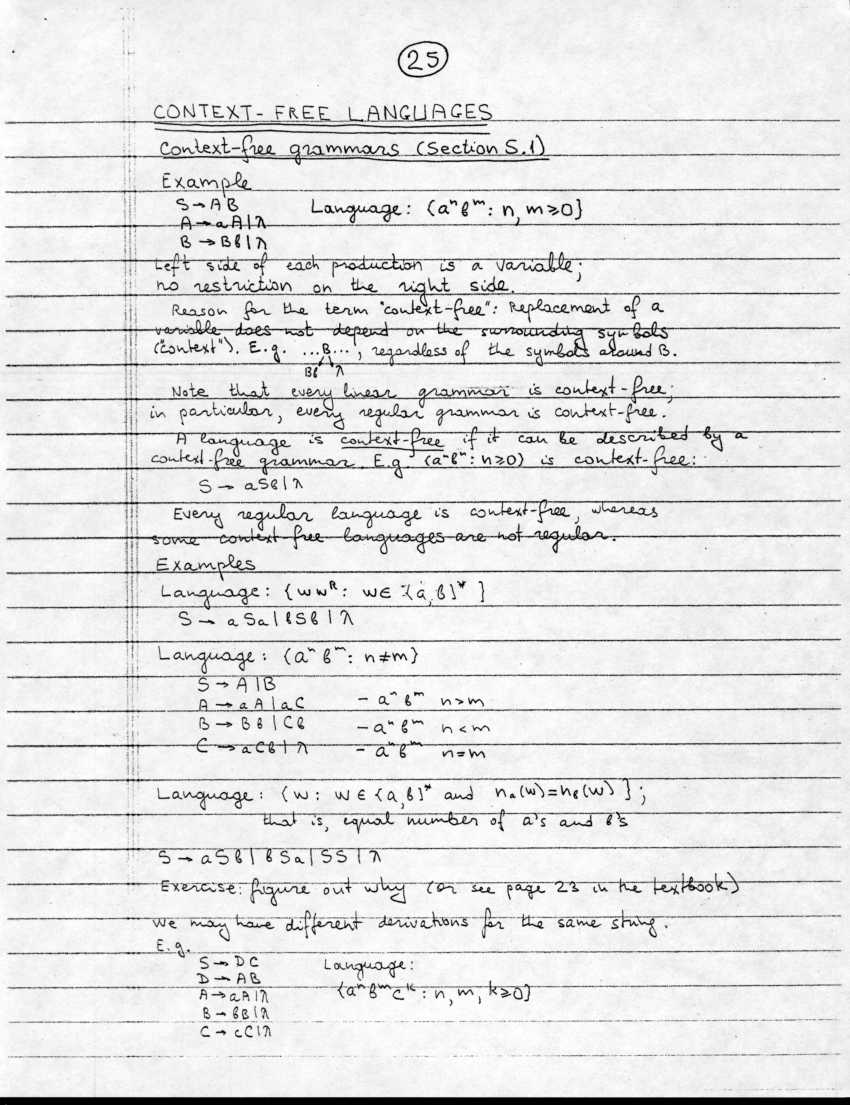 25
CONTEXT-FREE LANGUAGES
Context-free grammars (Section 5.1)
Example
S→AB Language: {aⁿbᵐ: n, m≥0}
A→aA|λ
B→Bb|λ
Left side of each production is a variable;
no restriction on the right side.
Reason for the term "context-free": Replacement of a
variable does not depend on the surrounding symbols
("context"). E.g. ...B..., regardless of the symbols around B.
Bb λ
Note that every linear grammar is context-free;
in particular, every regular grammar is context-free.
A language is context-free if it can be described by a
context-free grammar. E.g. {aⁿbⁿ: n≥0} is context-free:
S→aSb|λ
Every regular language is context-free, whereas
some context-free languages are not regular.
Examples
Language: {wwᴿ: w∈{a,b}* }
S→aSa|bSb|λ
Language: {aⁿbᵐ: n≠m}
S→A|B
A→aA|aC - aⁿbᵐ n>m
B→Bb|Cb - aⁿbᵐ n<m
C→aCb|λ - aⁿbᵐ n=m
Language: {w: w∈{a,b}* and nₐ(w)=n_b(w)};
that is, equal number of a's and b's
S→aSb|bSa|SS|λ
Exercise: figure out why (or see page 23 in the textbook)
We may have different derivations for the same string.
E.g.
S→DC Language:
D→AB
A→aA|λ {aⁿbᵐcᵏ: n, m, k≥0}
B→bB|λ
C→cC|λ